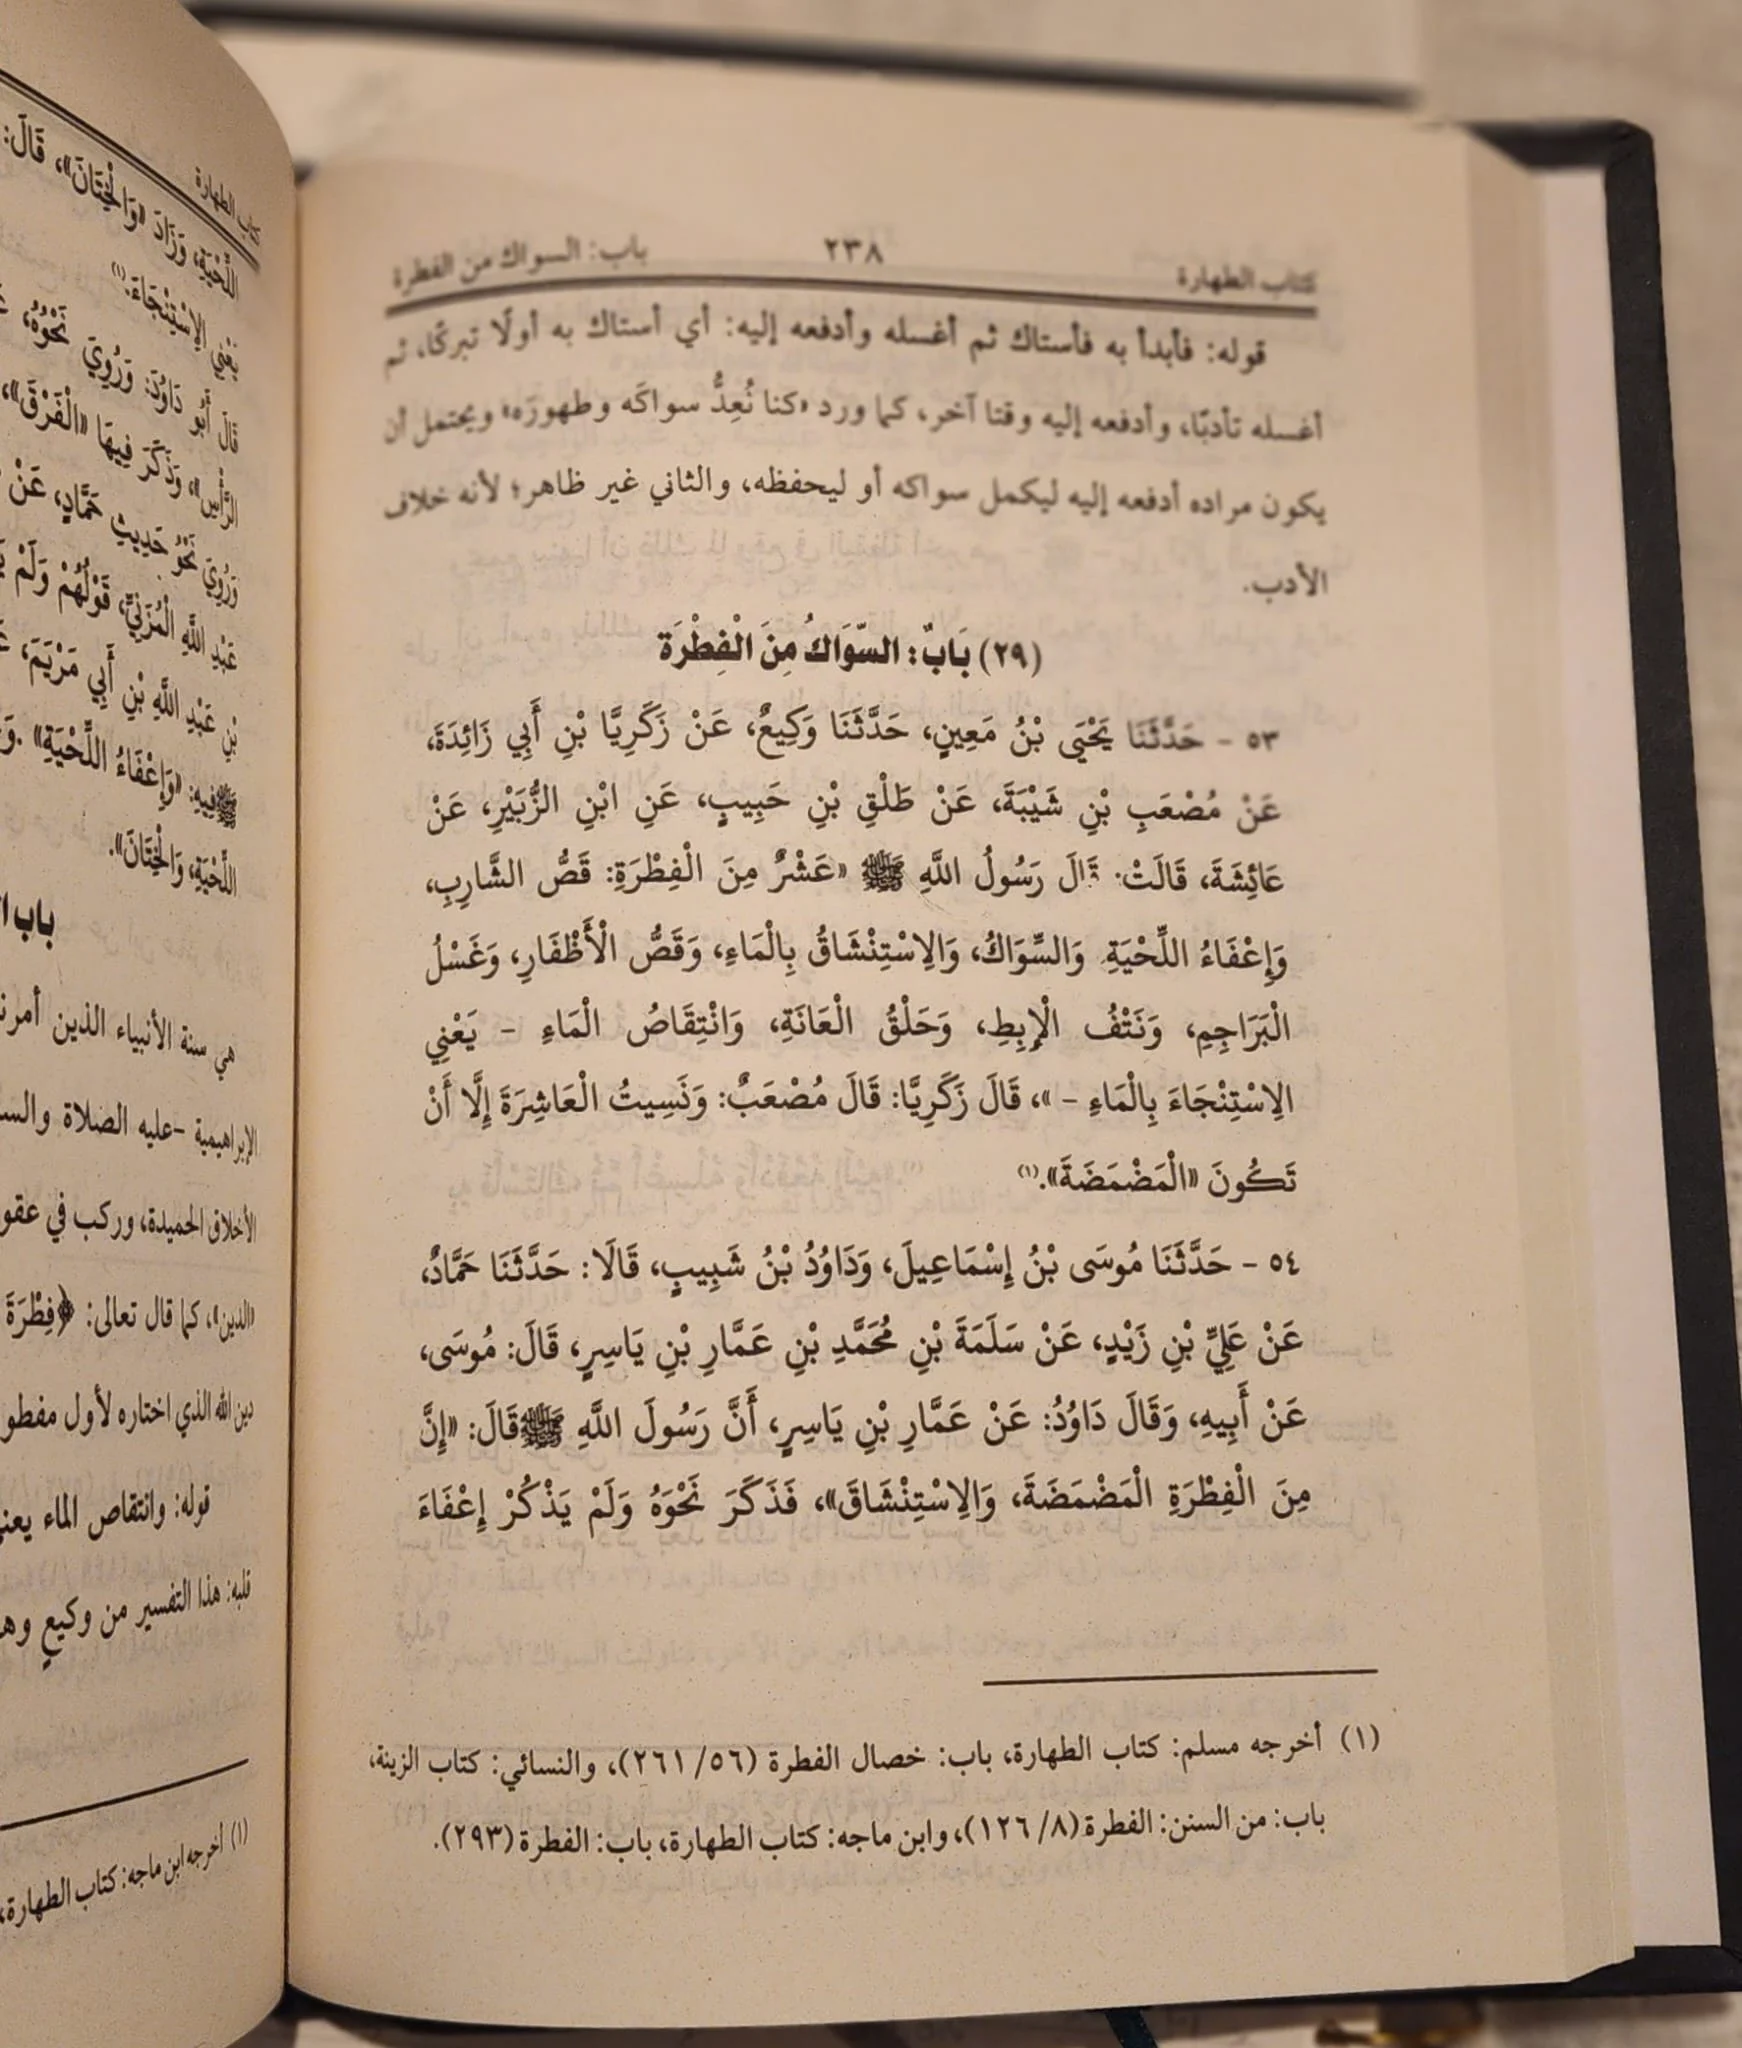 كتاب الطهارة ٢٣٨ باب: السواك من الفطرة
قوله: فأبدأ به فأستاك ثم أغسله وأدفعه إليه: أي أستاك به أولًا تبركًا، ثم
أغسله تأدبًا، وأدفعه إليه وقتا آخر، كما ورد «كنا نُعِدُّ سواكَه وطهورَه» ويحتمل أن
يكون مراده أدفعه إليه ليكمل سواكه أو ليحفظه، والثاني غير ظاهر؛ لأنه خلاف
الأدب.
(٢٩) بَابٌ: السّوَاكُ مِنَ الْفِطْرَة
٥٣ - حَدَّثَنَا يَحْيَى بْنُ مَعِينٍ، حَدَّثَنَا وَكِيعٌ، عَنْ زَكَرِيَّا بْنِ أَبِي زَائِدَةَ،
عَنْ مُصْعَبِ بْنِ شَيْبَةَ، عَنْ طَلْقِ بْنِ حَبِيبٍ، عَنِ ابْنِ الزُّبَيْرِ، عَنْ
عَائِشَةَ، قَالَتْ: قَالَ رَسُولُ اللَّهِ ﷺ «عَشْرٌ مِنَ الْفِطْرَةِ: قَصُّ الشَّارِبِ،
وَإِعْفَاءُ اللِّحْيَةِ، وَالسِّوَاكُ، وَالِاسْتِنْشَاقُ بِالْمَاءِ، وَقَصُّ الْأَظْفَارِ، وَغَسْلُ
الْبَرَاجِمِ، وَنَتْفُ الْإِبِطِ، وَحَلْقُ الْعَانَةِ، وَانْتِقَاصُ الْمَاءِ - يَعْنِي
الِاسْتِنْجَاءَ بِالْمَاءِ - »، قَالَ زَكَرِيَّا: قَالَ مُصْعَبٌ: وَنَسِيتُ الْعَاشِرَةَ إِلَّا أَنْ
تَكُونَ «الْمَضْمَضَةَ».(١)
٥٤ - حَدَّثَنَا مُوسَى بْنُ إِسْمَاعِيلَ، وَدَاوُدُ بْنُ شَبِيبٍ، قَالَا: حَدَّثَنَا حَمَّادٌ،
عَنْ عَلِيِّ بْنِ زَيْدٍ، عَنْ سَلَمَةَ بْنِ مُحَمَّدِ بْنِ عَمَّارِ بْنِ يَاسِرٍ، قَالَ: مُوسَى،
عَنْ أَبِيهِ، وَقَالَ دَاوُدُ: عَنْ عَمَّارِ بْنِ يَاسِرٍ، أَنَّ رَسُولَ اللَّهِ ﷺ قَالَ: «إِنَّ
مِنَ الْفِطْرَةِ الْمَضْمَضَةَ، وَالِاسْتِنْشَاقَ»، فَذَكَرَ نَحْوَهُ وَلَمْ يَذْكُرْ إِعْفَاءَ
(١) أخرجه مسلم: كتاب الطهارة، باب: خصال الفطرة (٢٦١/٥٦)، والنسائي: كتاب الزينة،
باب: من السنن: الفطرة (١٢٦/٨)، وابن ماجه: كتاب الطهارة، باب: الفطرة (٢٩٣).
كتاب الطهارة
اللِّحْيَةِ، وَزَادَ «وَالْخِتَانَ»، قَالَ:
يَعْنِي الِاسْتِنْجَاءَ.(١)
قَالَ أَبُو دَاوُدَ: وَرُوِيَ نَحْوُهُ،
الرَّأْسِ»، وَذَكَرَ فِيهَا «الْفَرْقَ»،
وَرُوِيَ نَحْوُ حَدِيثِ حَمَّادٍ، عَنْ
عَبْدِ اللَّهِ الْمُزَنِيِّ، قَوْلُهُمْ وَلَمْ
بْنِ عَبْدِ اللَّهِ بْنِ أَبِي مَرْيَمَ،
ﷺ فِيهِ: «وَإِعْفَاءُ اللِّحْيَةِ».
اللِّحْيَةِ، وَالْخِتَانَ».
باب
هي سنة الأنبياء الذين
الإبراهيمية -عليه الصلاة
الأخلاق الحميدة، وركب في
«الدين»، كما قال تعالى: ﴿فِطْرَةَ
دين الله الذي اختاره لأول
قوله: وانتقاص الماء
قلبه: هذا التفسير من وكيع
(١) أخرجه ابن ماجه: كتاب الطهارة،